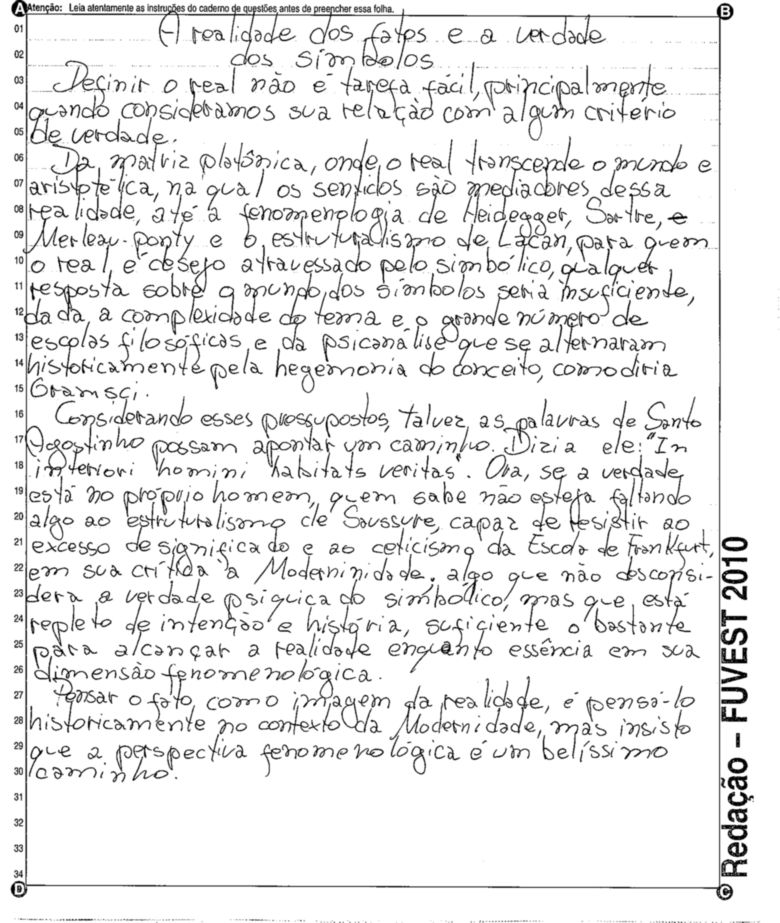 A Atenção: Leia atentamente as instruções do caderno de questões antes de preencher essa folha. B
01 A realidade dos fatos e a verdade
02 dos símbolos
03 Definir o real não é tarefa fácil, principalmente
04 quando consideramos sua relação com algum critério
05 de verdade.
06 Da matriz platônica, onde o real transcende o mundo e
07 aristotélica, na qual os sentidos são mediadores dessa
08 realidade, até a fenomenologia de Heidegger, Sartre, e
09 Merleau-ponty e o estruturalismo de Lacan, para quem
10 o real é desejo atravessado pelo simbólico, qualquer
11 resposta sobre o mundo dos símbolos seria insuficiente,
12 dada a complexidade do tema e o grande número de
13 escolas filosóficas e da psicanálise que se alternaram
14 historicamente pela hegemonia do conceito, como diria
15 Gramsci.
16 Considerando esses pressupostos, talvez, as palavras de Santo
17 Agostinho possam apontar um caminho. Dizia ele: "In
18 interiori homini habitats veritas". Ora, se a verdade
19 está no próprio homem, quem sabe não esteja faltando
20 algo ao estruturalismo de Saussure, capaz de resistir ao
21 excesso de significado e ao ceticismo da Escola de Frankfurt,
22 em sua crítica à Moderninidade, algo que não desconsi-
23 dera a verdade psíquica do simbólico, mas que está
24 repleto de intenção e história, suficiente o bastante
25 para alcançar a realidade enquanto essência em sua
26 dimensão fenomenológica.
27 Pensar o fato, como imagem da realidade, é pensá-lo
28 historicamente no contexto da Modernidade, mas insisto
29 que a perspectiva fenomenológica é um belíssimo
30 caminho.
31
32
33
34
D C
Redação – FUVEST 2010